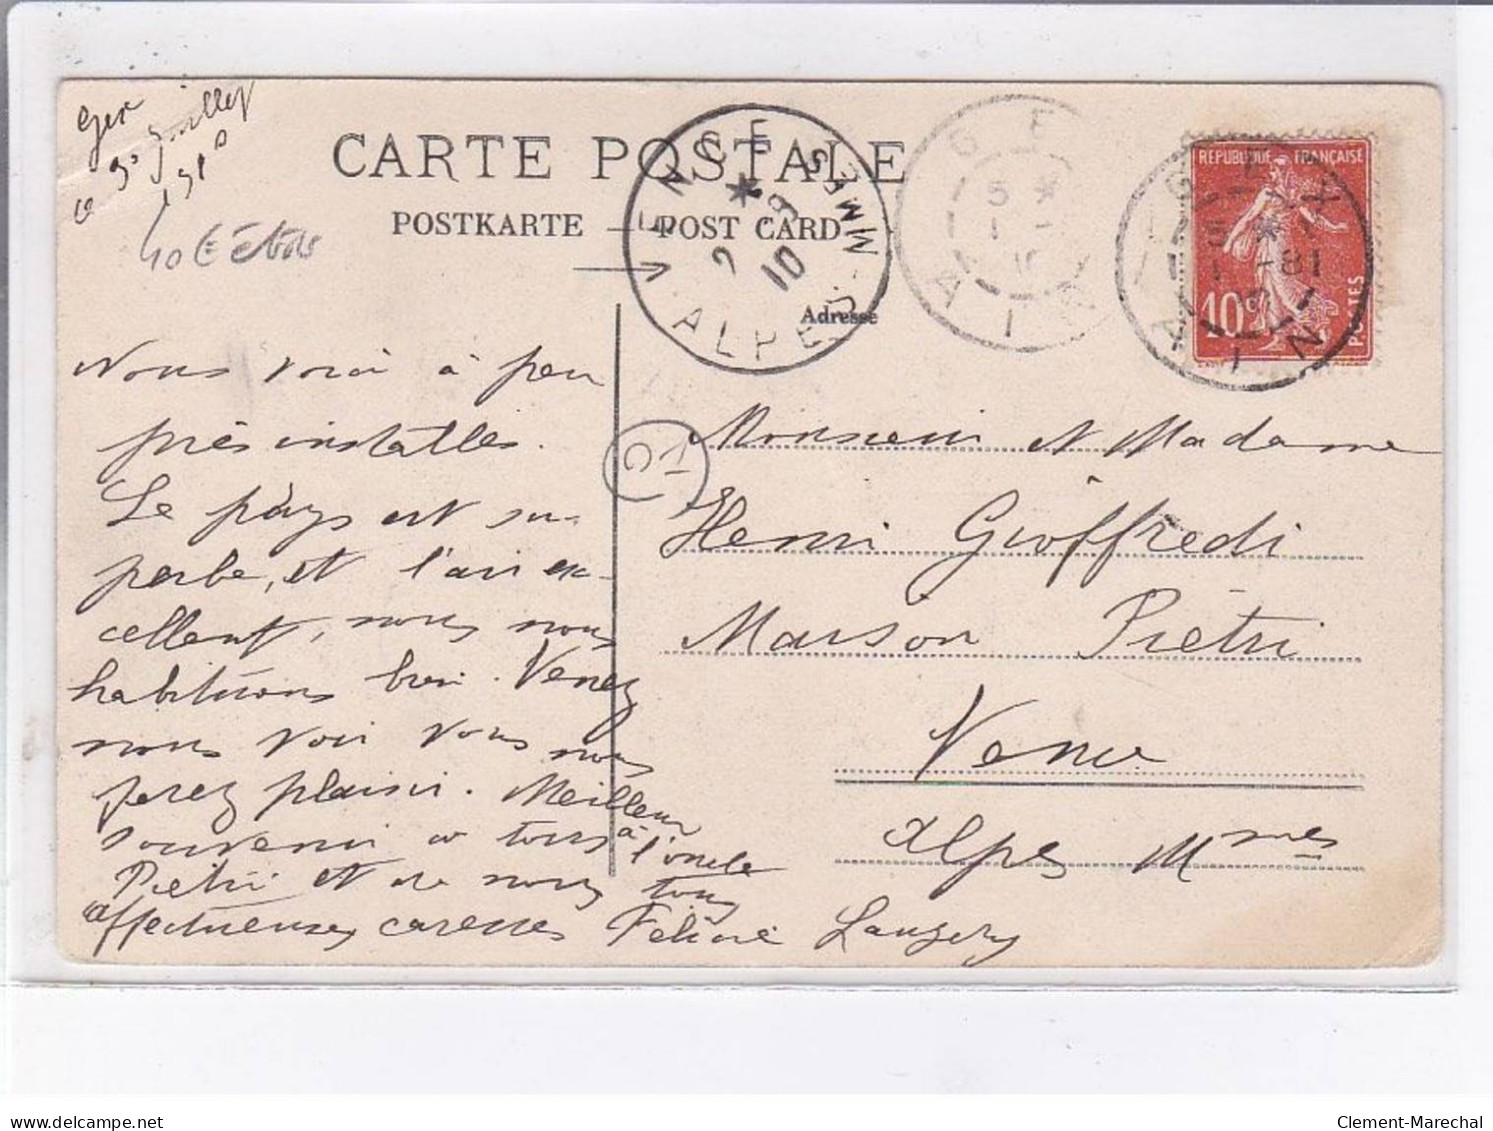 Gex
le 30 Juillet
1910
CARTE POSTALE
POSTKARTE — POST CARD
Adresse
VENCE
ALPES-MMES
2 - 8
10
GEX
AIN
5 *
1 - 8
10
GEX
AIN
5 *
1 - 8
10
REPUBLIQUE FRANÇAISE
10c
POSTES
Nous voici à peu
près installés.
Le pays est su-
perbe, et l'air ex-
cellent, nous nous
habituons bien. Venez
nous voir vous nous
ferez plaisir. Meilleur
souvenir à tous à l'oncle
Piétri et de nous tous
affectueuses caresses Félicie Laugery
Monsieur et Madame
Henri Gioffredi
Maison Piétri
Vence
Alpes Mmes
delcampe.net
Clement-Marechal